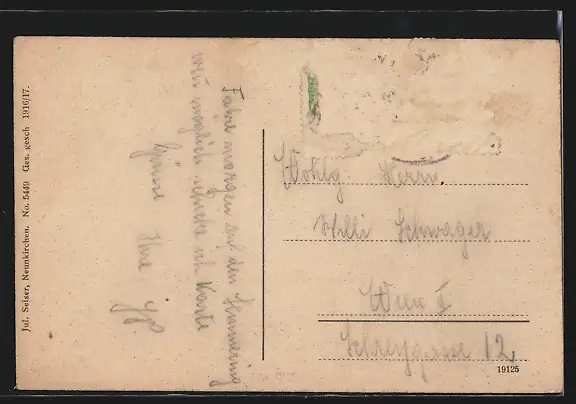 Fahre morgen auf den Semmering
wenn möglich schicke ich Karte
Grüsse Ihre
Wohlg Herrn
Willi Schwager
Wien I
12
19125
Jul. Seiser, Neunkirchen. No. 5449 Ges. gesch 1916/17.